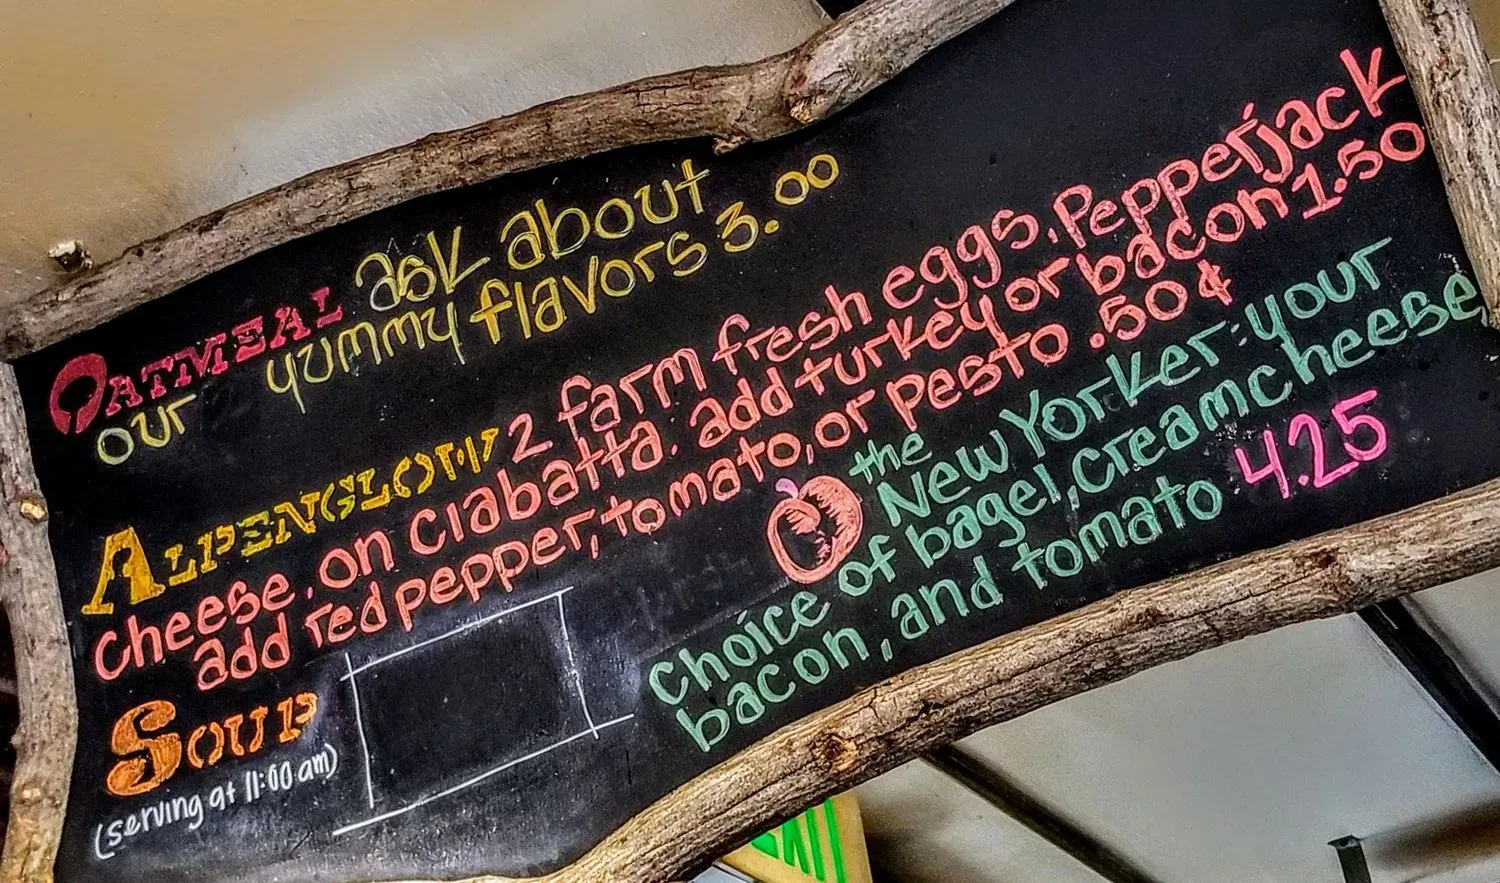 OATMEAL ask about
our yummy flavors 3.00
ALPENGLOW 2 farm fresh eggs, Pepperjack
cheese, on ciabatta. add turkey or bacon 1.50
add red pepper, tomato, or pesto .50¢
the
New Yorker: your
choice of bagel, creamcheese,
bacon, and tomato 4.25
SOUP
(serving at 11:00 am)
EXIT